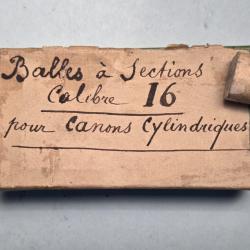 Balles à Sections
Calibre 16
pour Canons Cylindriques